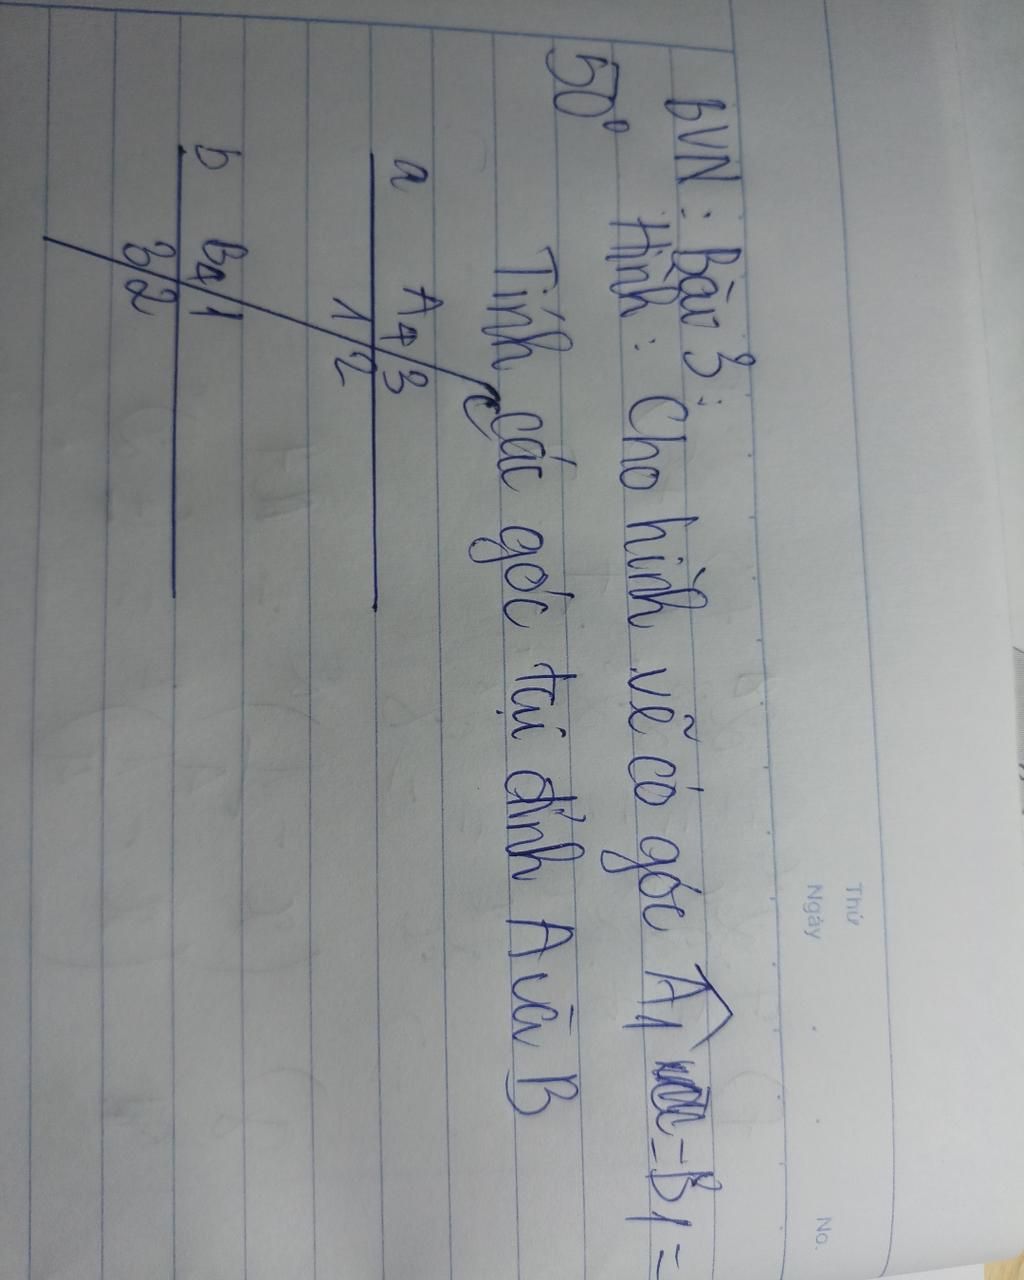 Thứ
Ngày No.
BVN : Bài 3 :
Hình : Cho hình vẽ có góc A1 = B1 =
50°
Tính các góc tại đỉnh A và B
c
a A4 3
1 2
b B4 1
3 2